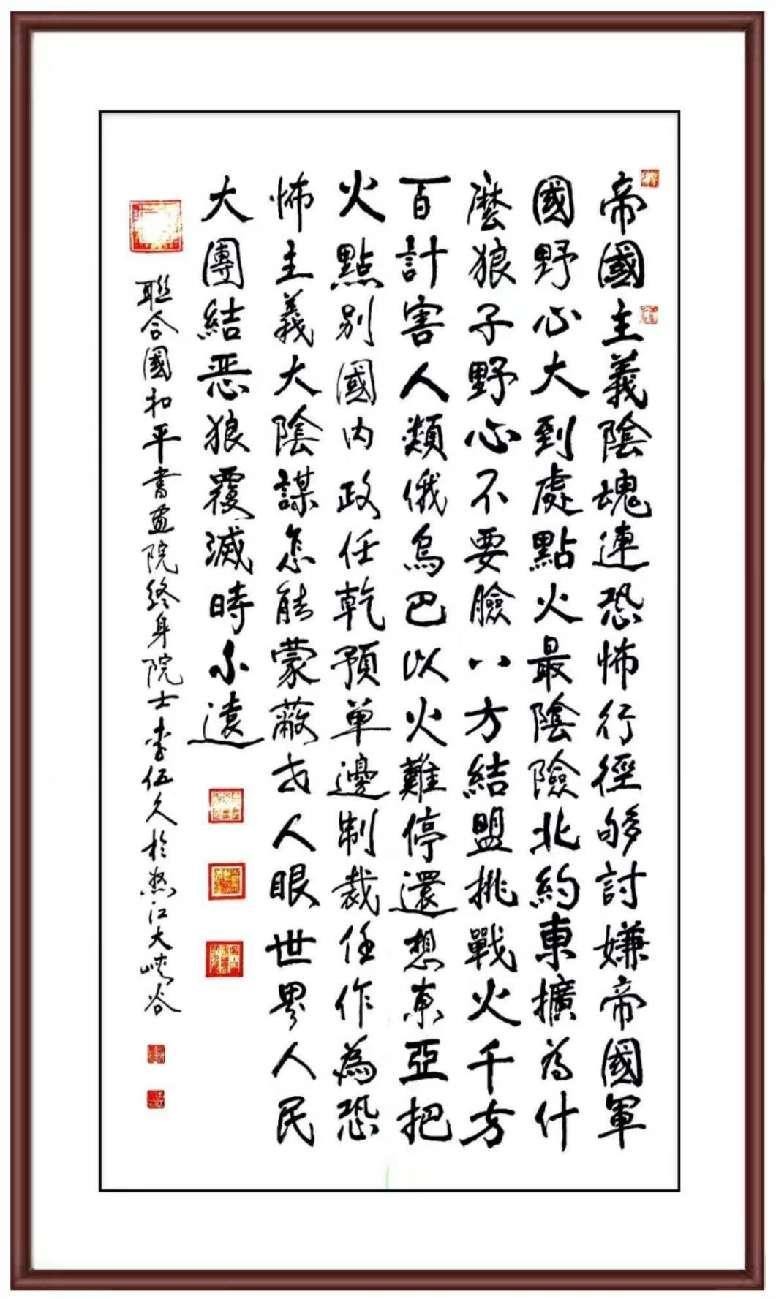 帝國主義陰魂連恐怖行徑够討嫌帝國軍
國野心大到處點火最陰險北約東擴為什
麽狼子野心不要臉八方結盟挑戰火千方
百計害人類俄烏巴以火難停還想東亞把
火點别國内政任乾預单邊制裁任作為恐
怖主義大陰謀怎能蒙蔽世人眼世界人民
大團結恶狼覆滅時不遠
聯合國和平書畫院終身院士李伍久於怒江大峽谷